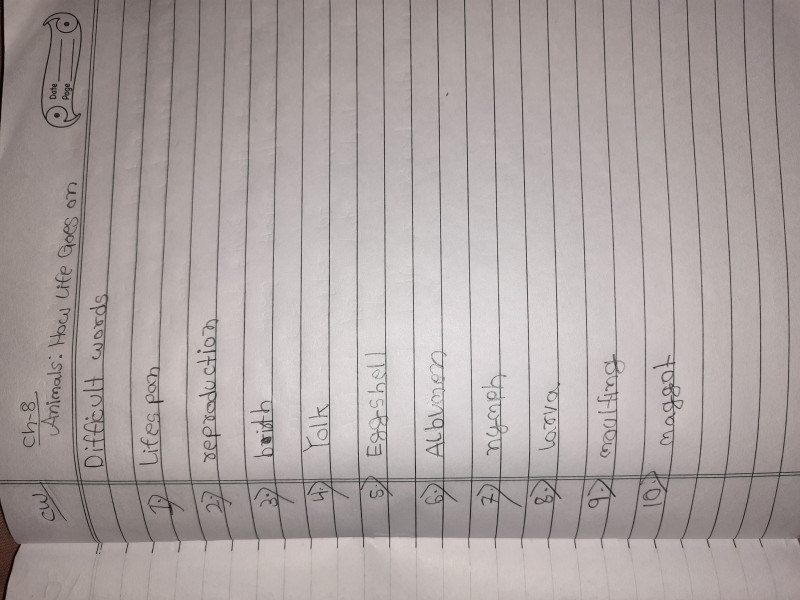 Date
Page
CW
Ch-8
Animals: How Life Goes on
Difficult words
1) Lifespan
2) reproduction
3) birth
4) Yolk
5) Eggshell
6) Albumen
7) nymph
8) larva
9) moulting
10) maggot